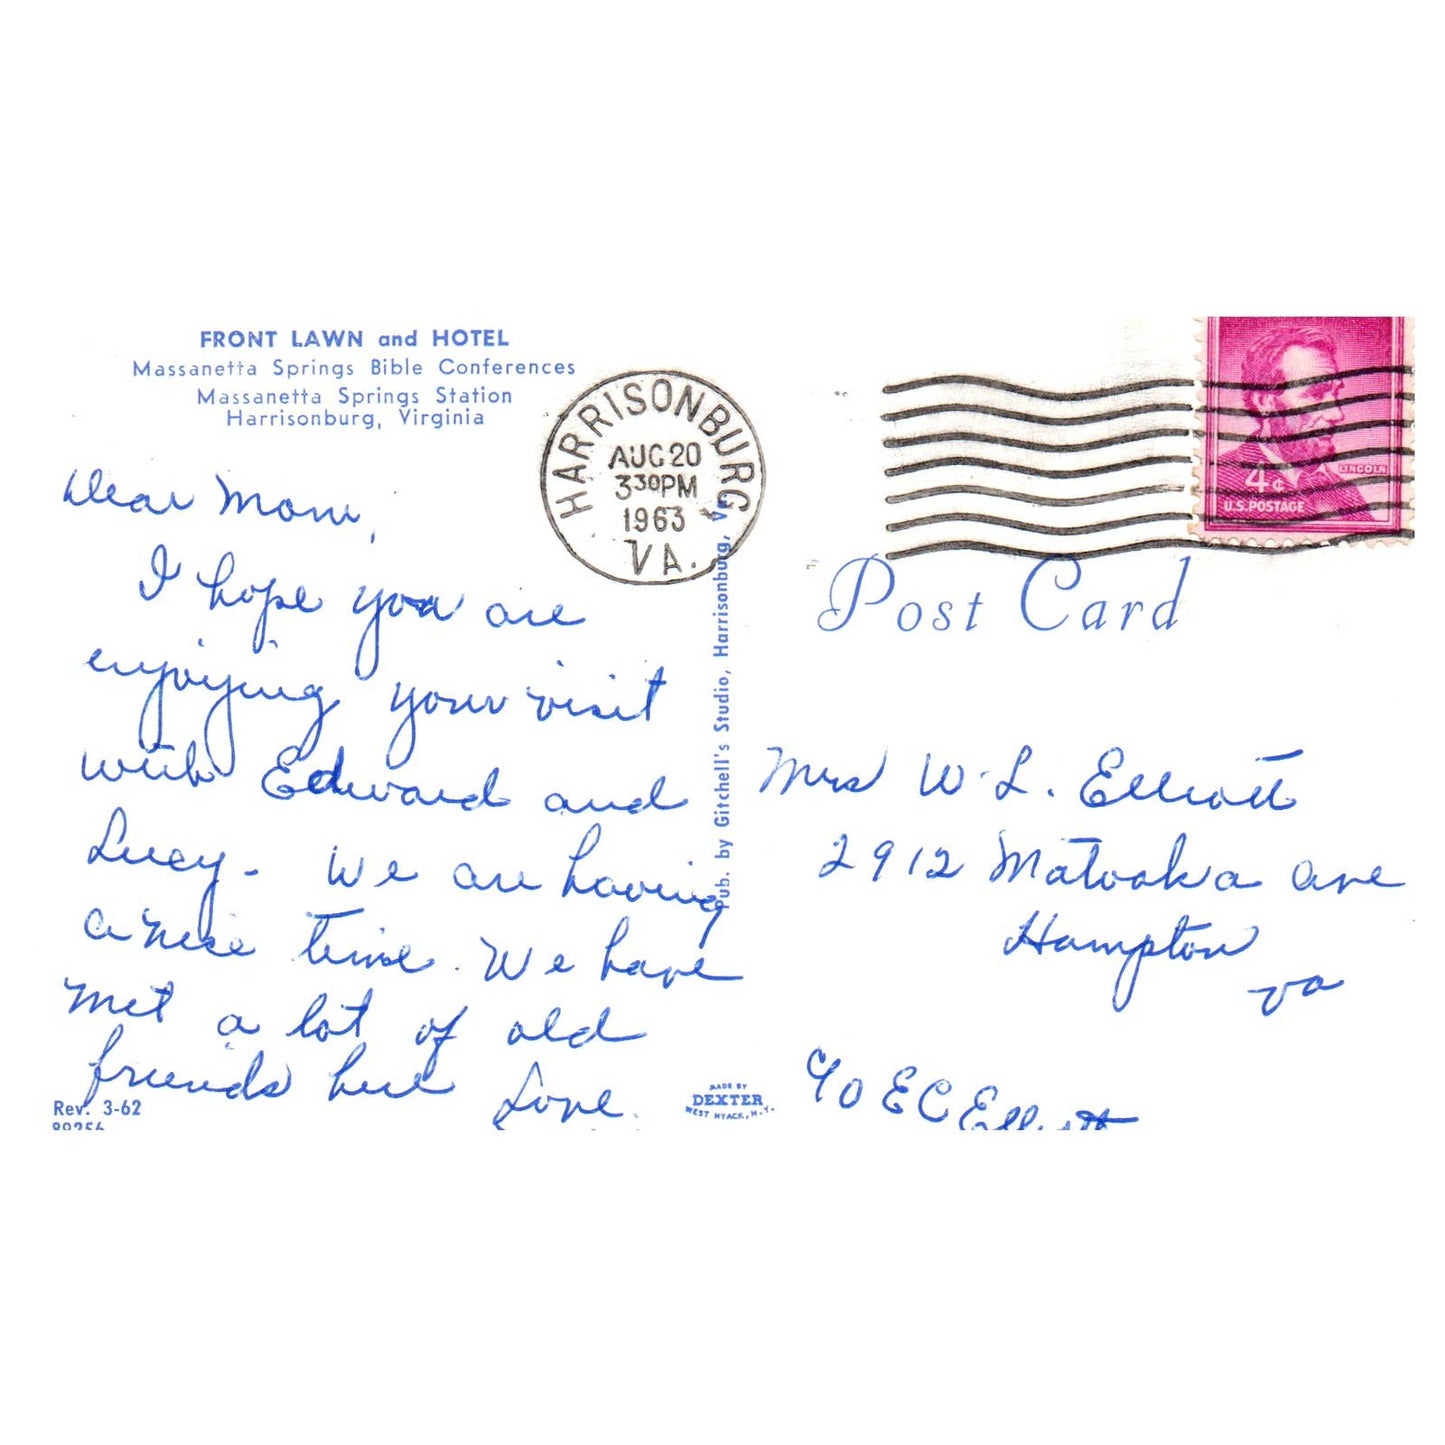 FRONT LAWN and HOTEL
Massanetta Springs Bible Conferences
Massanetta Springs Station
Harrisonburg, Virginia
HARRISONBURG
AUG 20
3 30 PM
1963
VA.
LINCOLN
4¢
U.S. POSTAGE
Post Card
Dear Mom,
I hope you are
enjoying your visit
with Edward and
Lucy - We are having
a nice time. We have
met a lot of old
friends here Love
Pub. by Gitchell's Studio, Harrisonburg, Va.
Mrs W. L. Elliott
2912 Matoaka Ave
Hampton
Va
c/o E C Elliott
Rev. 3-62
MADE BY
DEXTER
WEST NYACK, N.Y.